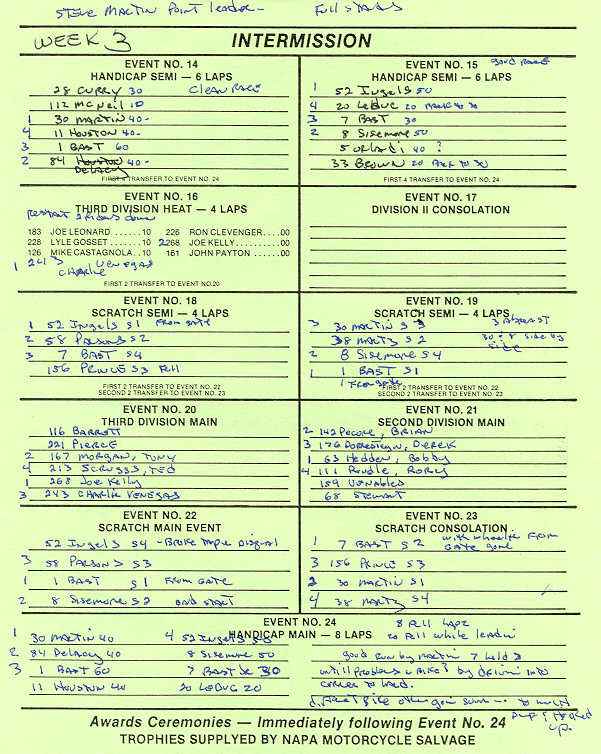 STEVE MARTIN POINT LEADER - FULL STANDS
WEEK 3
INTERMISSION
EVENT NO. 14
HANDICAP SEMI — 6 LAPS
28 CURRY 30 CLEAN RACE
112 McNeil 10
1 30 MARTIN 40-
4 11 HOUSTON 40-
3 1 BAST 60
2 84 HOUSTON 40-
DELACY
FIRST 4 TRANSFER TO EVENT NO. 24
EVENT NO. 15 good Race
HANDICAP SEMI — 6 LAPS
1 52 Ingels 50
4 20 LeDuc 20
3 7 BAST 30
2 8 Sisemore 50
5 Orlandi 40 ?
33 BROWN 20
FIRST 4 TRANSFER TO EVENT NO. 24
EVENT NO. 16
THIRD DIVISION HEAT — 4 LAPS
RESTART down
183 JOE LEONARD ......10 226 RON CLEVENGER....00
228 LYLE GOSSET ......20 2 268 JOE KELLY..........00
126 MIKE CASTAGNOLA..10 161 JOHN PAYTON .......00
1 243 VENEGAS
CHARLIE
FIRST 2 TRANSFER TO EVENT NO. 20
EVENT NO. 17
DIVISION II CONSOLATION
EVENT NO. 18
SCRATCH SEMI — 4 LAPS
1 52 Ingels S1 FROM GATE
2 58 PARSONS S2
3 7 BAST S4
156 PRINCE S3 Fell
FIRST 2 TRANSFER TO EVENT NO. 22
SECOND 2 TRANSFER TO EVENT NO. 23
EVENT NO. 19
SCRATCH SEMI — 4 LAPS
3 30 MARTIN S3 3 Abreast
38 MARTZ S2 30 + 8 side by
side
2 8 Sisemore S4
1 1 BAST S1
From gate
FIRST 2 TRANSFER TO EVENT NO. 22
SECOND 2 TRANSFER TO EVENT NO. 23
EVENT NO. 20
THIRD DIVISION MAIN
116 BARRETT
221 PIERCE
2 167 MORGAN, TONY
4 213 SCRUGGS, TED
1 268 Joe Kelly
3 243 CHARLIE VENEGAS
EVENT NO. 21
SECOND DIVISION MAIN
2 142 Pecore, BRIAN
3 176 , DEREK
1 63 Hedden, Bobby
4 111 , Rory
159 VENABLES
68 STEWART
EVENT NO. 22
SCRATCH MAIN EVENT
52 Ingels S4 - BROKE TAPE DISQUAL
3 58 PARSONS S3
1 1 BAST S1 FROM GATE
2 8 Sisemore S2 2nd START
EVENT NO. 23
SCRATCH CONSOLATION
1 7 BAST S2 with wheelie FROM
GATE gone
3 156 PRINCE S3
2 30 MARTIN S1
4 38 MARTZ S4
EVENT NO. 24 8 Full Laps
HANDICAP MAIN — 8 LAPS 20 Fell while leading
1 30 MARTIN 40 4 52 Ingels 50
2 84 DELACY 40 8 SISEMORE 50
3 1 BAST 60 7 BAST 30
11 HOUSTON 40 20 LEDUC 20
good run by MARTIN 7 held 3
until problems w bike? by driving into
corner to hard.
Awards Ceremonies — Immediately following Event No. 24
TROPHIES SUPPLYED BY NAPA MOTORCYCLE SALVAGE